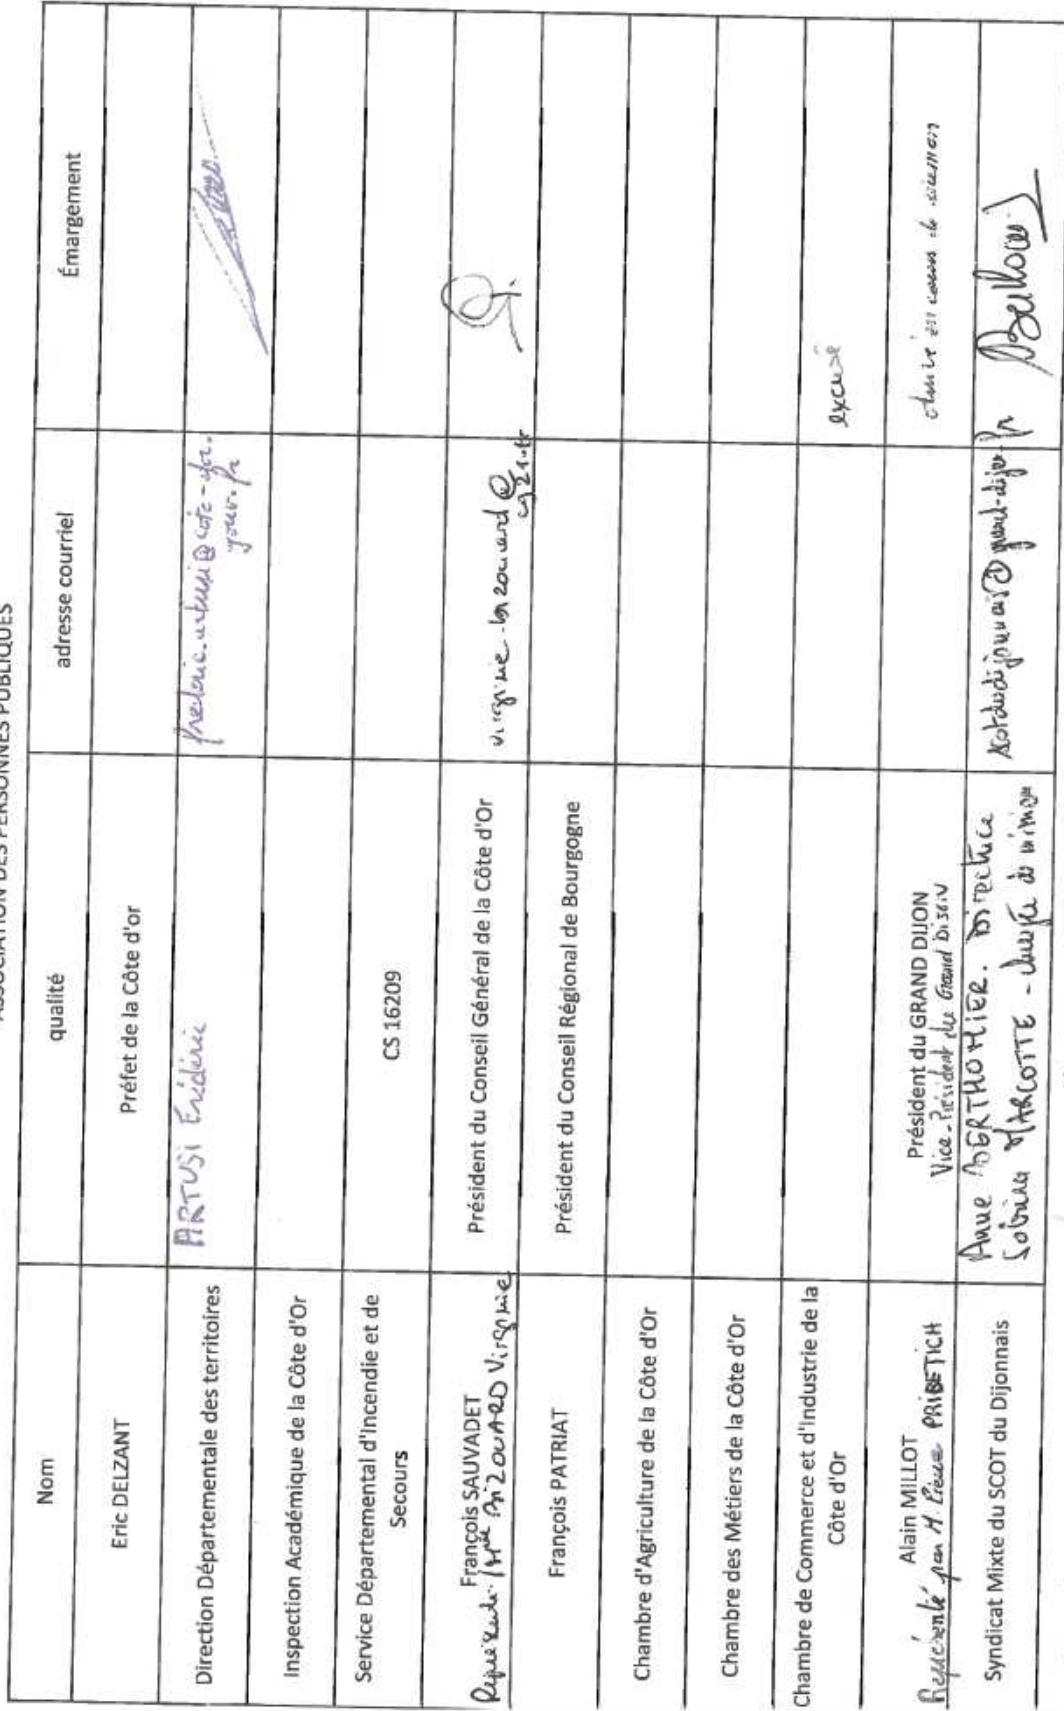 ASSOCIATION DES PERSONNES PUBLIQUES
Nom qualité adresse courriel Émargement
Eric DELZANT Préfet de la Côte d'or
Direction Départementale des territoires ARTUSI Frédéric frederic.artusi@cote-dor.
gouv.fr
Inspection Académique de la Côte d'Or
Service Départemental d'Incendie et de
Secours CS 16209
François SAUVADET Président du Conseil Général de la Côte d'Or
Virginie
cg21.fr
François PATRIAT Président du Conseil Régional de Bourgogne
Chambre d'Agriculture de la Côte d'Or
Chambre des Métiers de la Côte d'Or
Chambre de Commerce et d'Industrie de la
Côte d'Or excusé
Alain MILLOT Président du GRAND DIJON
Représenté par M. Pierre PRIBETICH Vice-Président du Grand Dijon
en cours de
Syndicat Mixte du SCOT du Dijonnais Anne BERTHOMIER. Directrice
MARCOTTE - chargée de mission
scotdudijonnais@grand-dijon.fr